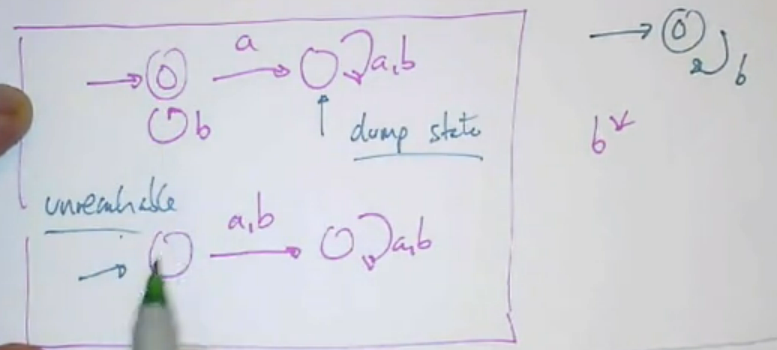 a
a,b
b
dump state
unreachable
a,b
a,b
b
b*